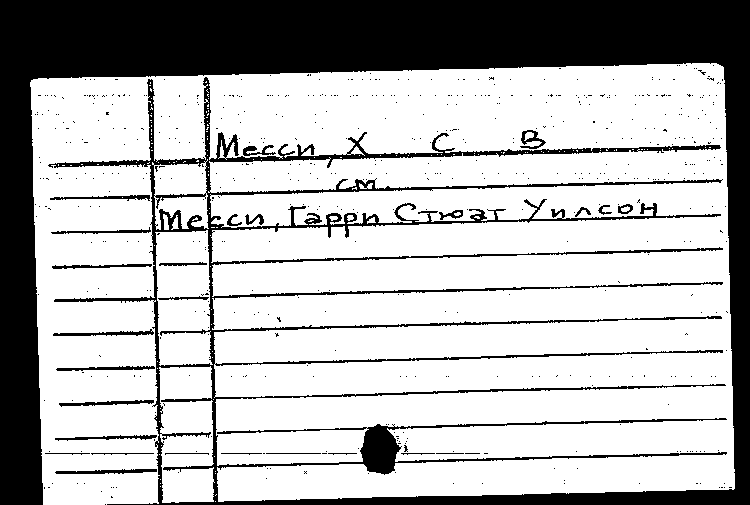 Месси, Х С В
см.
Месси, Гарри Стюат Уилсон